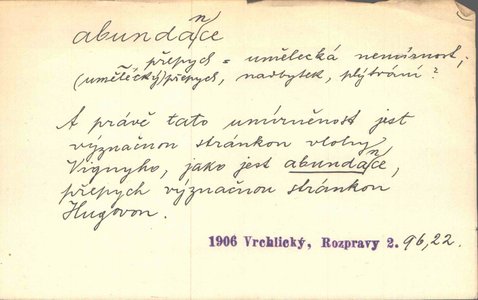 abundance
přepych = umělecká nemírnost;
(umělecký) přepych, nadbytek, plýtvání?
A právě tato umírněnost jest
význačnou stránkou vlohy
Vignyho, jako jest abundance,
přepych význačnou stránkou
Hugovou.
1906 Vrchlický, Rozpravy 2. 96,22.